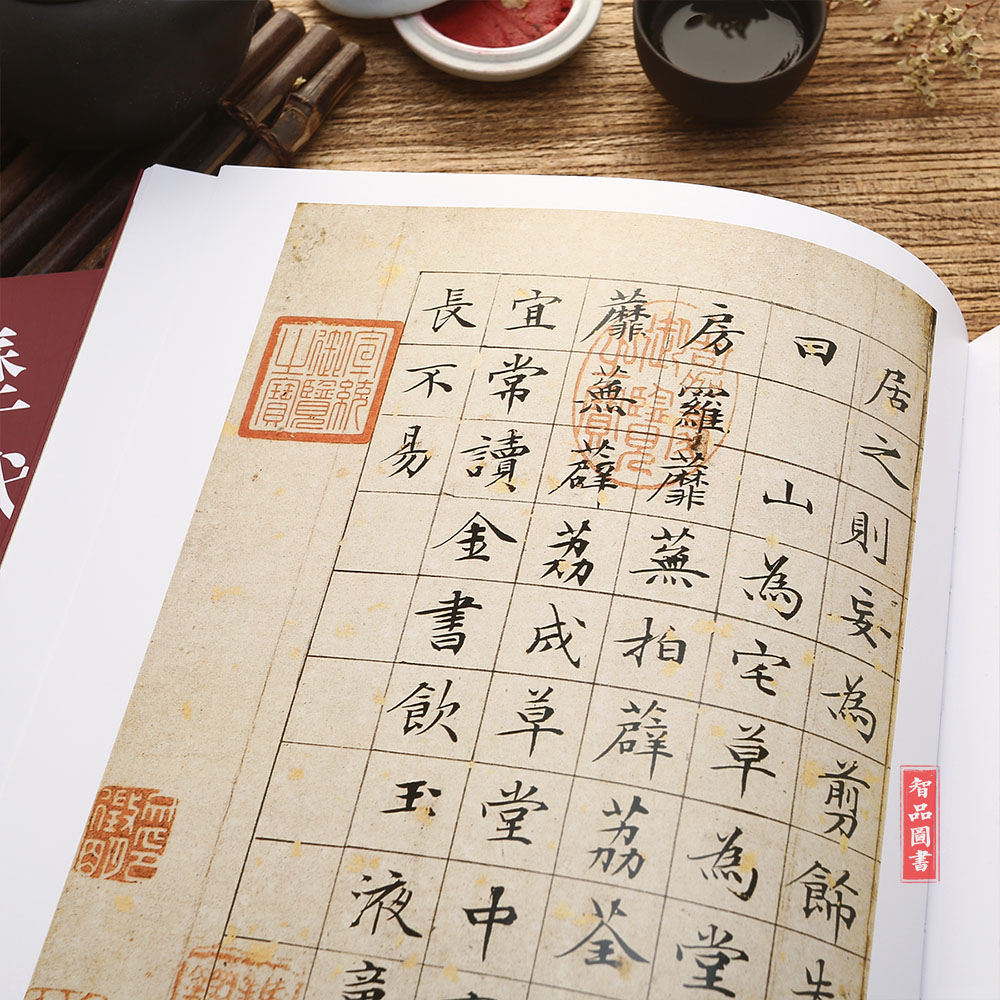 居之則妄為剪飾
曰山為宅草為堂
房羅蘼蕪拍薜荔荃
蘼蕪薜荔成草堂中
宜常讀金書飲玉液童
長不易
宣統御覽之寶
智品圖書